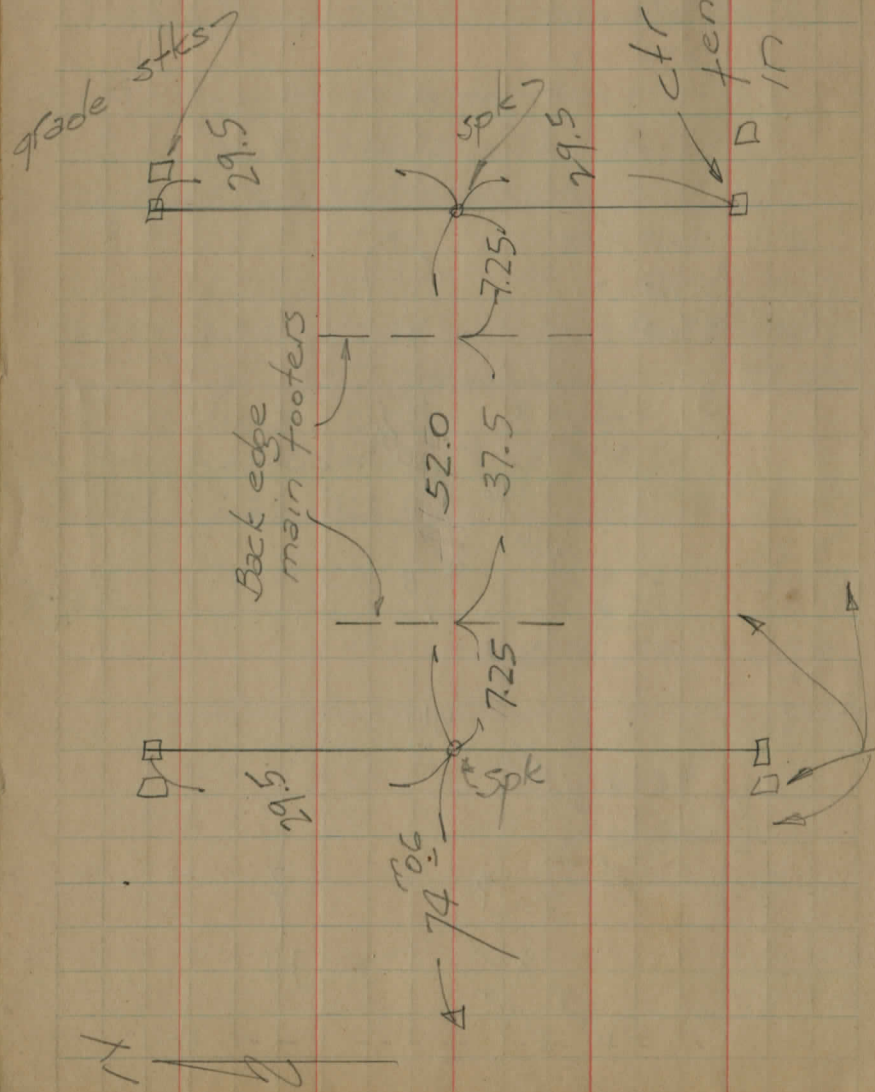 grade stks
29.5
Spk
29.5
ctr
7.25
Back edge
main footers
52.0
37.5
7.25
29.5
Spk
74
N